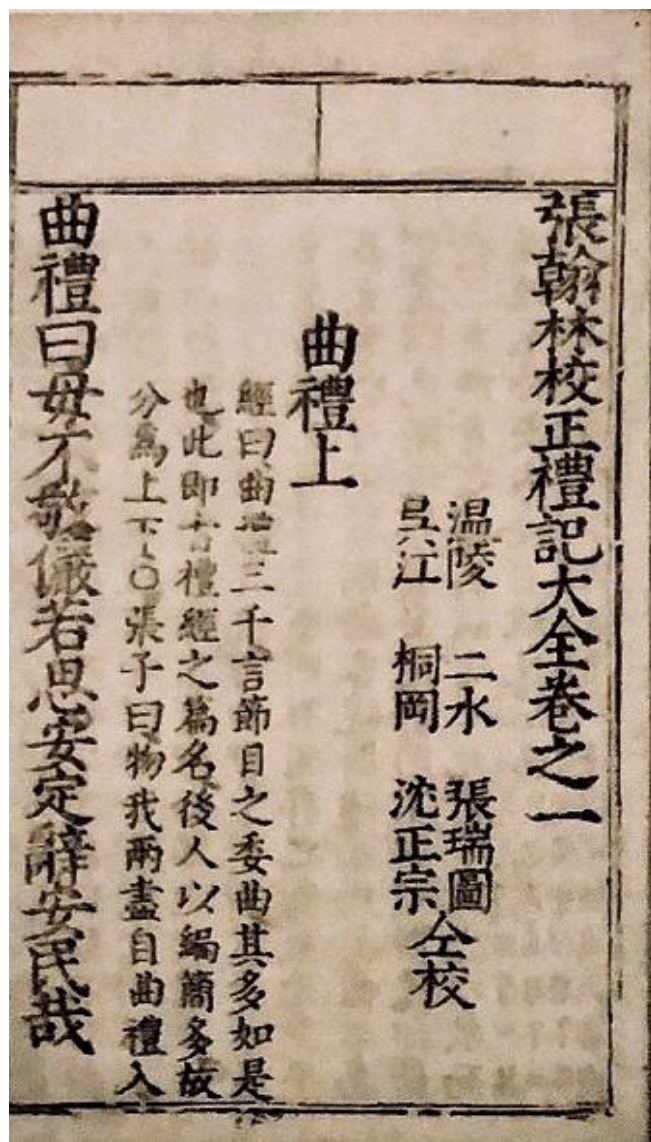 張翰林校正禮記大全卷之一
温陵 二水 張瑞圖
吳江 桐岡 沈正宗
仝校
曲禮上
經曰曲禮三千言節目之委曲其多如是
也此即古禮經之篇名後人以編簡多故
分爲上下○張子曰物我兩盡自曲禮入
曲禮曰毋不敬儼若思安定辭安民哉